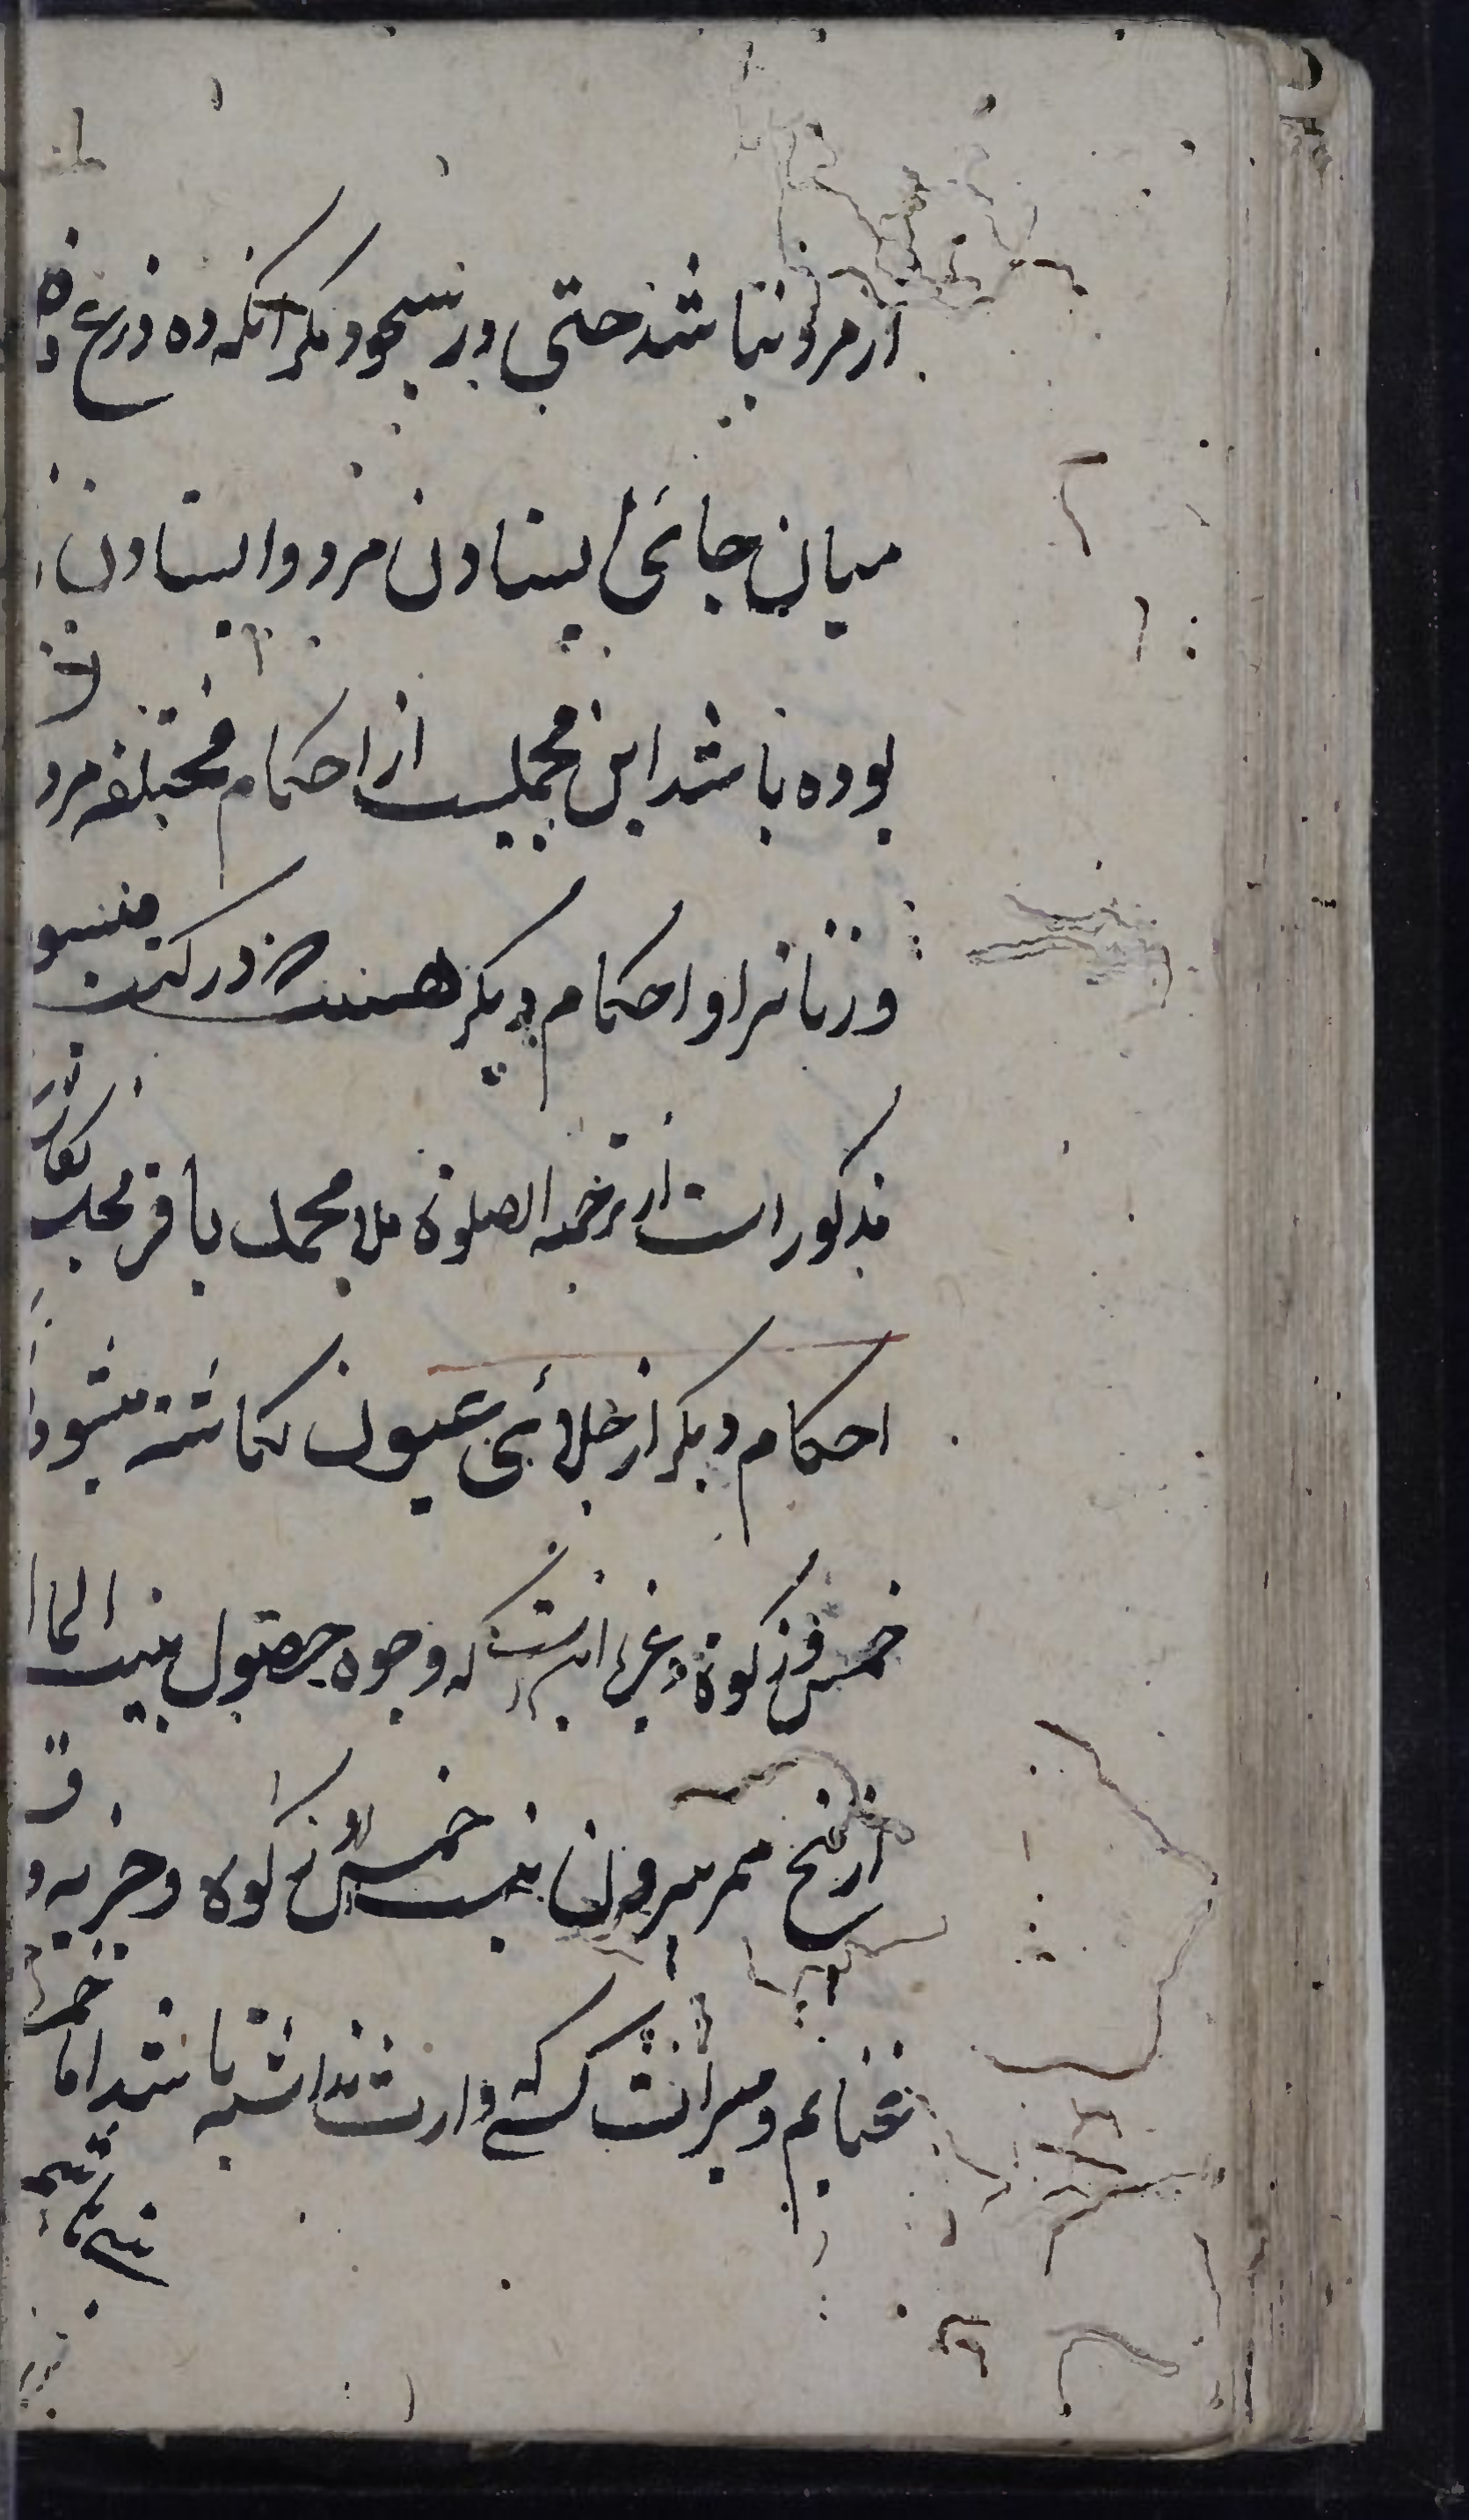 از مرد نباشد حتی در سجود مکر آنکه ده ذرع
میان جائی ایستادن مرد و ایستادن
بوده باشد این مجملیست از احکام مختلفه مرد
و زنانرا و احکام دیکر هست که در کتب
مذکور است از ترجمه الصلوة ملا محمد باقر مجلسی
احکام دیکر از جلائی عیون نکاشته میشود
خمس و زکوة و غیره اینست که وجوه حصول بیت الما
از پنج ممر بیرون نیست خمس و زکوة و جزیه و
غنایم و میراث کسی که وارث نداشته باشد اما